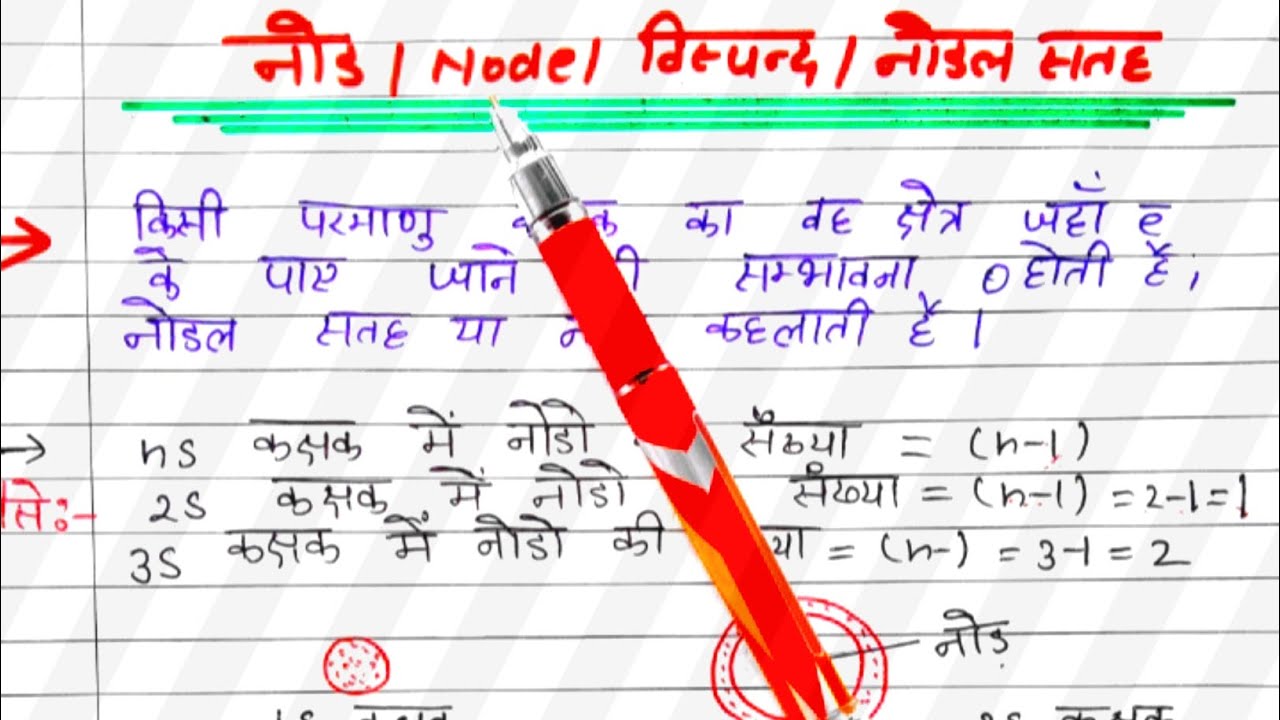 नोड / Node / विस्पन्द / नोडल सतह
किसी परमाणु का वह क्षेत्र जहाँ e
के पाए जाने सम्भावना 0 होती है,
नोडल सतह या कहलाती है ।
→ ns कक्षक में नोडो संख्या = (n-1)
2s कक्षक में नोडो संख्या = (n-1) = 2-1=1
3s कक्षक में नोडो की = (n-) = 3-1 = 2
नोड